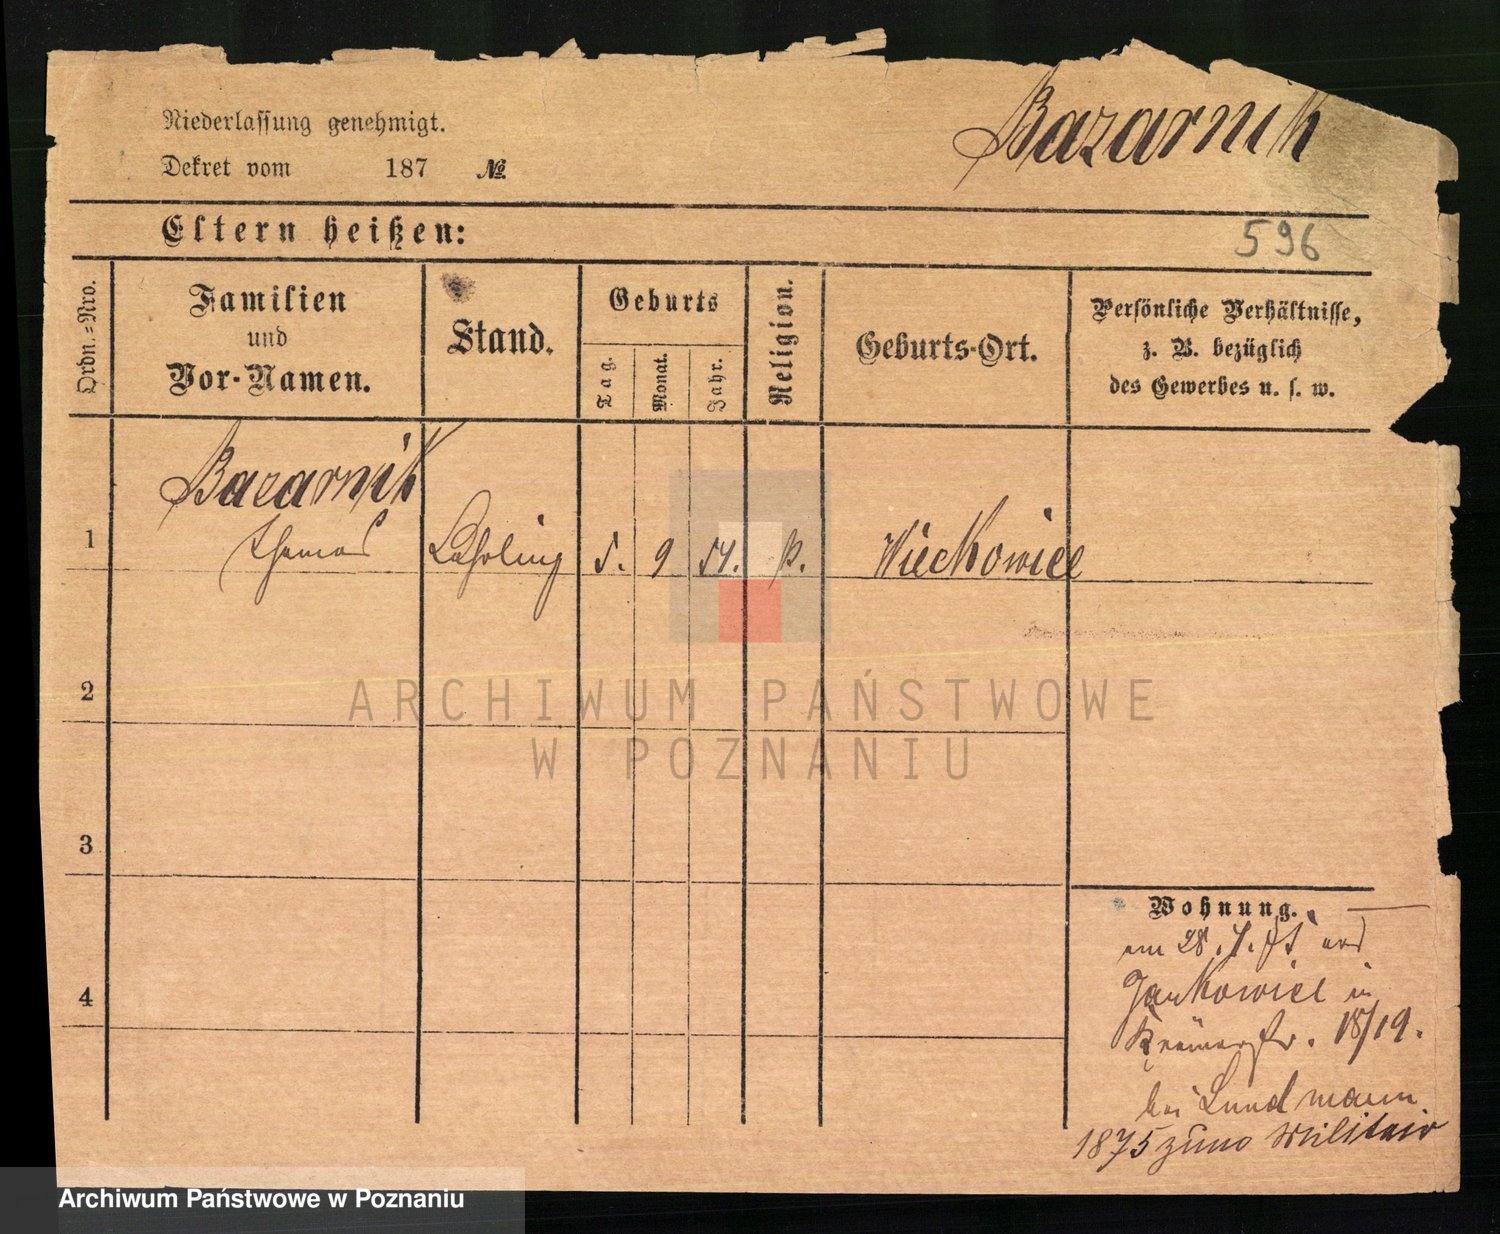 Niederlassung genehmigt.
Bazarnik
Dekret vom 187 №
Eltern heißen:
596
Ordn.=Nro.
Familien
und
Vor-Namen.
Stand.
Geburts
Tag.
Monat.
Jahr.
Religion.
Geburts-Ort.
Persönliche Verhältnisse,
z. B. bezüglich
des Gewerbes u. s. w.
Bazarnik
1 Thomas Lehrling 5. 9 54. k. Wieckowice
2
ARCHIWUM PAŃSTWOWE
W POZNANIU
3
Wohnung.
am 28. 7. aus
4
Jankowice in
Krämerstr. 18/19.
bei Landmann
1875 zum Militair
Archiwum Państwowe w Poznaniu